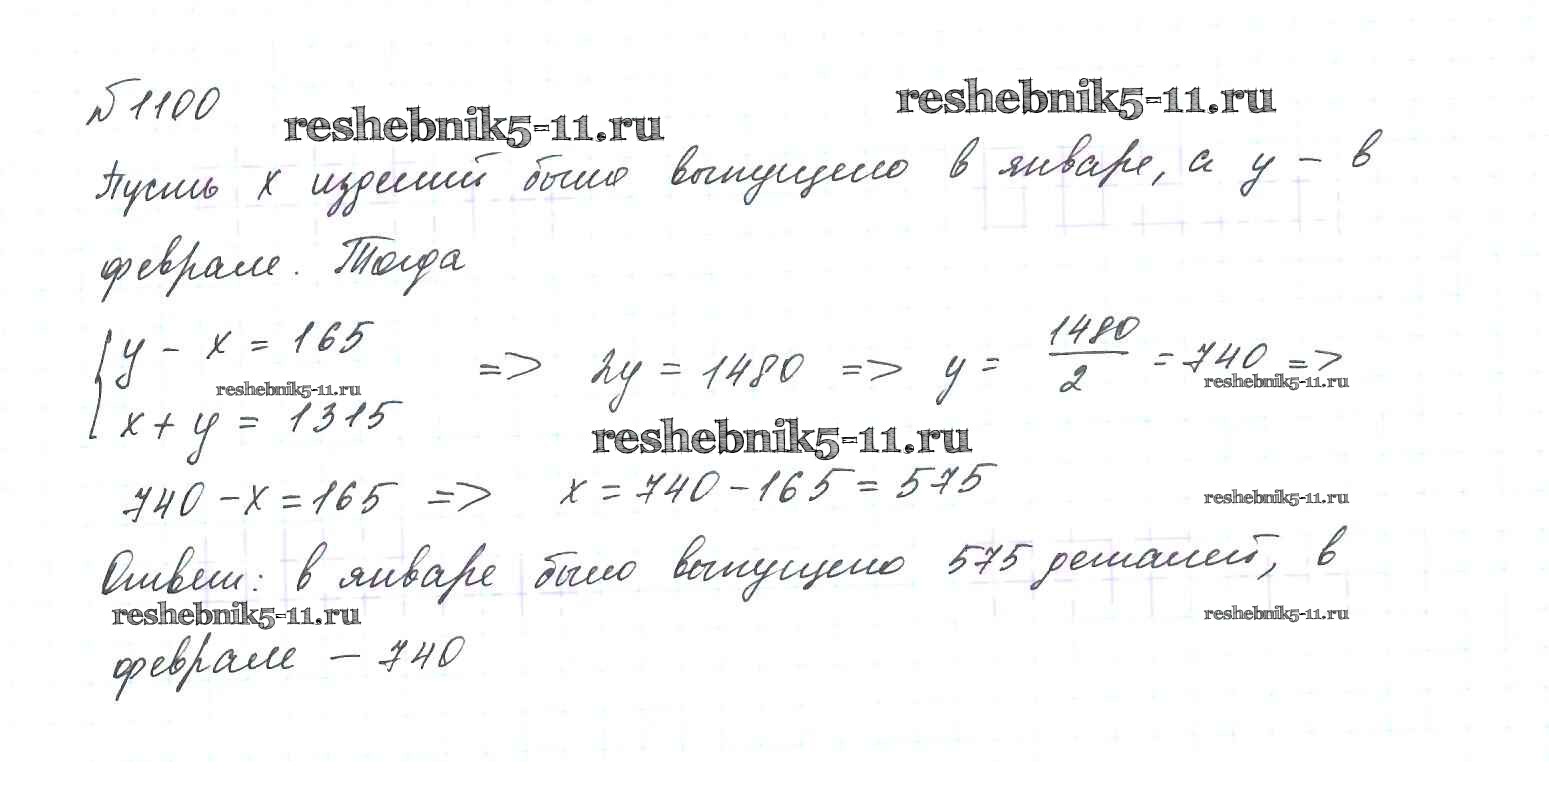 №1100
reshebnik5-11.ru
reshebnik5-11.ru
Пусть x изделий было выпущено в январе, а y – в
феврале. Тогда
{ y – x = 165
x + y = 1315
=> 2y = 1480 => y = 1480/2 = 740 =>
reshebnik5-11.ru
reshebnik5-11.ru
reshebnik5-11.ru
740 – x = 165 => x = 740 – 165 = 575
reshebnik5-11.ru
Ответ: в январе было выпущено 575 деталей, в
reshebnik5-11.ru
reshebnik5-11.ru
феврале – 740